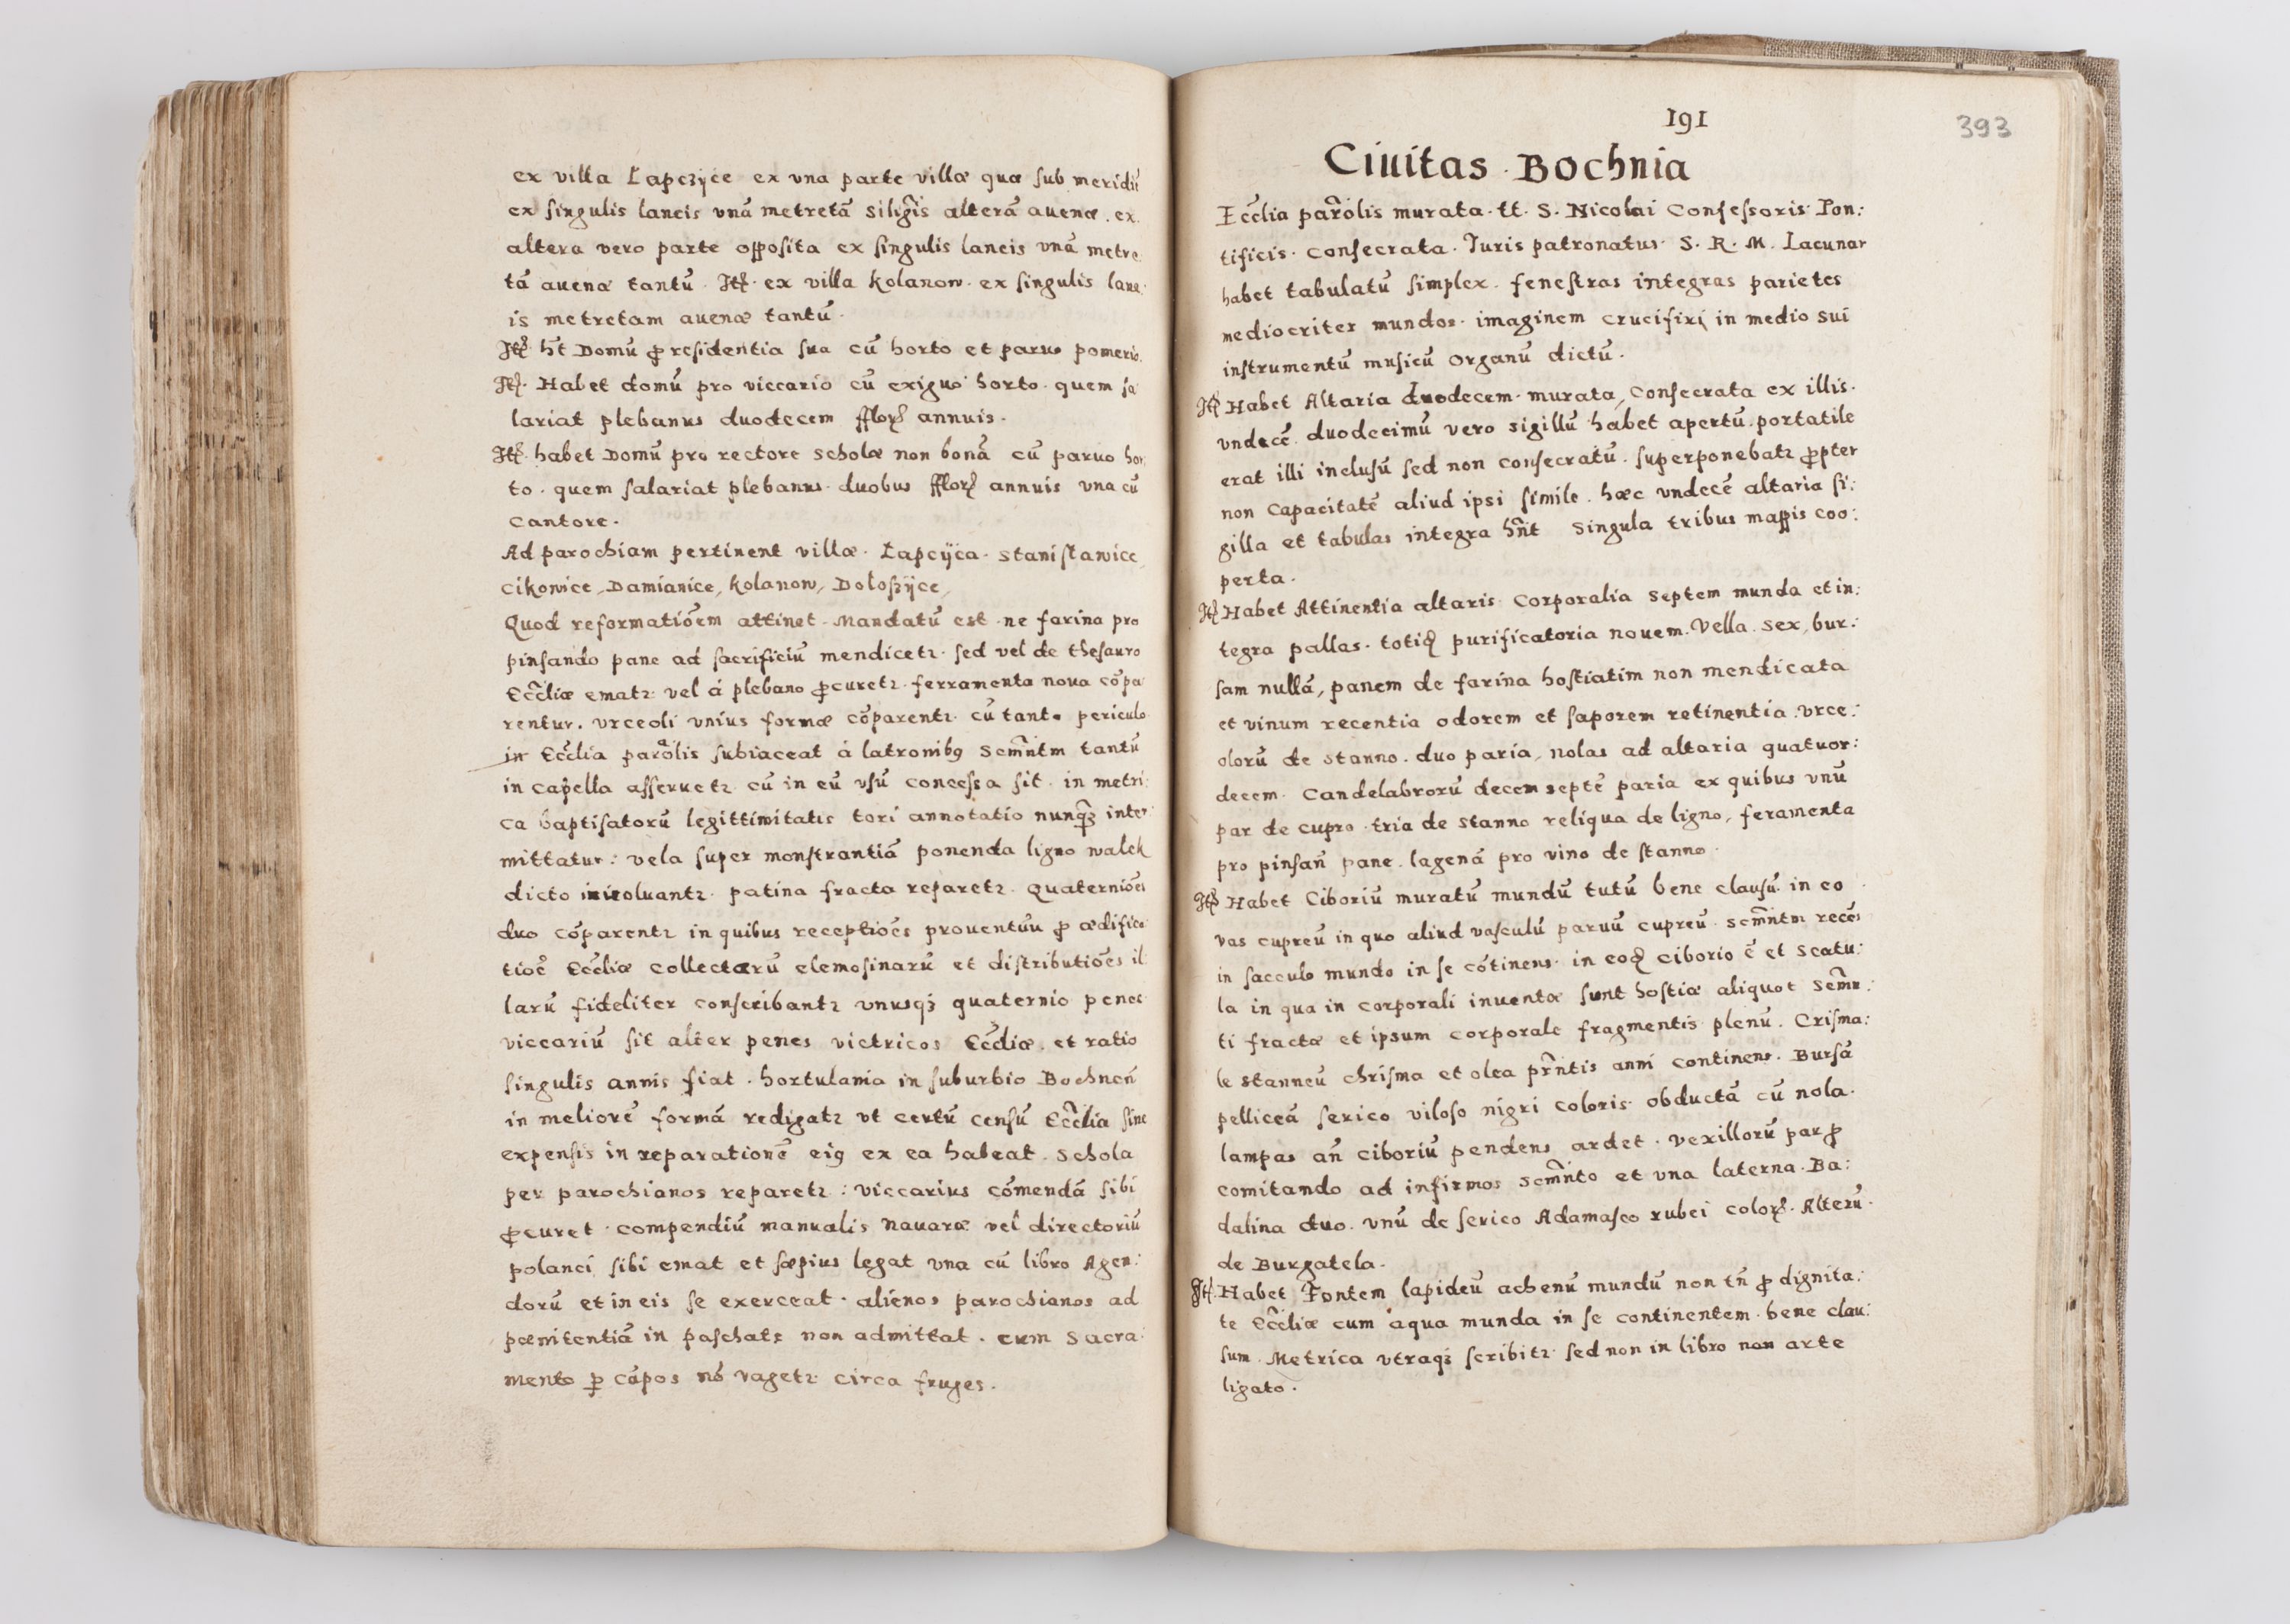 ex villa Łapczÿce ex vna parte villæ quæ ſub meridiē
ex ſingulis laneis vnā metretā siligīs alterā auenæ. ex
altera vero parte opposita ex ſingulis laneis vnā metre
tā auenæ tantū. Itē ex villa Kolanow. ex ſingulis lane:
is metretam auenæ tantū.
Itē. ht Domū ꝓ residentia ſua cū horto et paruo pomerio.
Itē. Habet domū pro viccario cū exiguo horto. quem ſa
lariat plebanus duodecem fflorʒ annuis.
Itē. habet Domū pro rectore scholæ non bonā cū paruo hor
to. quem ſalariat plebanus. duobus fflorʒ annuis vna cū
cantore.
Ad parochiam pertinent villæ. Łapcÿca. Staniſławice,
Cikowice, Damianice, Kolanow, Dołoſzÿce,
Quod reformatiōem attinet. Mandatū est ne farina pro
pinſando pane ad ſacrificiū mendicetꝛ. ſed vel de theſauro
Eccłiæ ematꝛ vel á plebano ꝓcuretꝛ. ferramenta noua cōpa
rentur. vrceoli vnius formæ cōparentꝛ. cū tanto periculo
in Eccłia parōlis ſubiaceat á latronibꝰ Scm̄ntm tantū
in capella aſſeruetꝛ cū in eū vſū conceſſa ſit. in metri:
ca baptiſatorū legittimitatis tori annotatio nunꝗʒ inter:
mittatur: vela ſuper monſtrantiā ponenda ligno walek
dicto inuoluantꝛ. patina fracta reparetꝛ. Quaterniōes
duo cōparentꝛ in quibus receptiōes prouentuū ꝓ ædifica:
tiōe Eccłiæ collectarū elemosinarū et diſtributiōes il
larū fideliter conſcribantꝛ vnusqʒ quaternio penes
viccariū ſit alter penes victricos Eccłiæ. et ratio
ſingulis annis fiat. hortulania in ſuburbio Bochneñ
in meliorē formā redigatꝛ vt certū cenſū Eccłia ſine
expenſis in reparationē eiꝰ ex ea habeat. Schola
per parochianos reparetꝛ: viccarius cōmendā ſibi
ꝓcuret. compendiū manualis Nauaræ vel directoriū
polanci ſibi emat et ſæpius legat vna cū libro Agen:
dorū et in eis ſe exerceat. alienos parochianos ad
pœnitentiā in paſchate non admittat. cum Sacra:
mento ꝑ cāpos nō vagetꝛ circa fruges.
191
393
Ciuitas Bochnia
Eccłia parōlis murata. tt. S. Nicolai Confeſſoris Pon:
tificis. conſecrata. Iuris patronatus. S. R. M. Lacunar
habet tabulatū ſimplex. feneſtras integras parietes
mediocriter mundos. imaginem crucifixi in medio sui
inſtrumentū muſicū organū dictū.
Itē Habet Altaria duodecem murata, Conſecrata ex illis.
vndecē. duodecimū vero sigillū habet apertū. portatile
erat illi incluſū ſed non conſecratū. ſuperponebatꝛ ꝓpter
non Capacitatē aliud ipsi ſimile. hæc vndecē altaria ſi:
gilla et tabulas integra hn̄t singula tribus mappis coo:
perta.
Itē Habet Attinentia altaris Corporalia septem munda et in:
tegra pallas. totiđ purificatoria nouem. Vella. sex, bur:
ſam nullā, panem de farina hoſtiatim non mendicata
et vinum recentia odorem et ſaporem retinentia. vrce:
olorū de stanno. duo paria, nolas ad altaria quatuor:
decem. Candelabrorū decem septē paria ex quibus vnū
par de cupro. tria de stanno reliqua de ligno, feramenta
pro pinſañ pane. lagenā pro vino de ſtanno.
Itē Habet Ciboriū muratū mundū tutū bene clauſū. in eo
vas cupreū in quo aliud vaſculū paruū cupreū. Scm̄ntm recēs
in ſacculo mundo in ſe cōtinens. in eođ ciborio ē et Scatu:
la in qua in corporali inuentæ ſunt hoſtiæ aliquot Semꝛ:
ti fractæ et ipsum corporale fragmentis plenū. Criſma:
le stanneū chriſma et olea prn̄tis anni continens. Burſā
pelliceā ſerico viloſo nigri coloris obductā cū nola.
lampas añ ciboriū pendens ardet. vexillorū par ꝓ
comitando ad infirmos Scm̄nto et vna laterna. Ba:
dalina duo. vnū de ſerico Adamaſco rubei colorʒ. Alterū.
de Burgatela.
Itē. Habet Fontem lapideū ahenū mundū non tñ ꝓ dignita:
te Eccłiæ cum aqua munda in ſe continentem. bene clau:
ſum. Metrica vtraqʒ ſcribitꝛ ſed non in libro non arte
ligato.